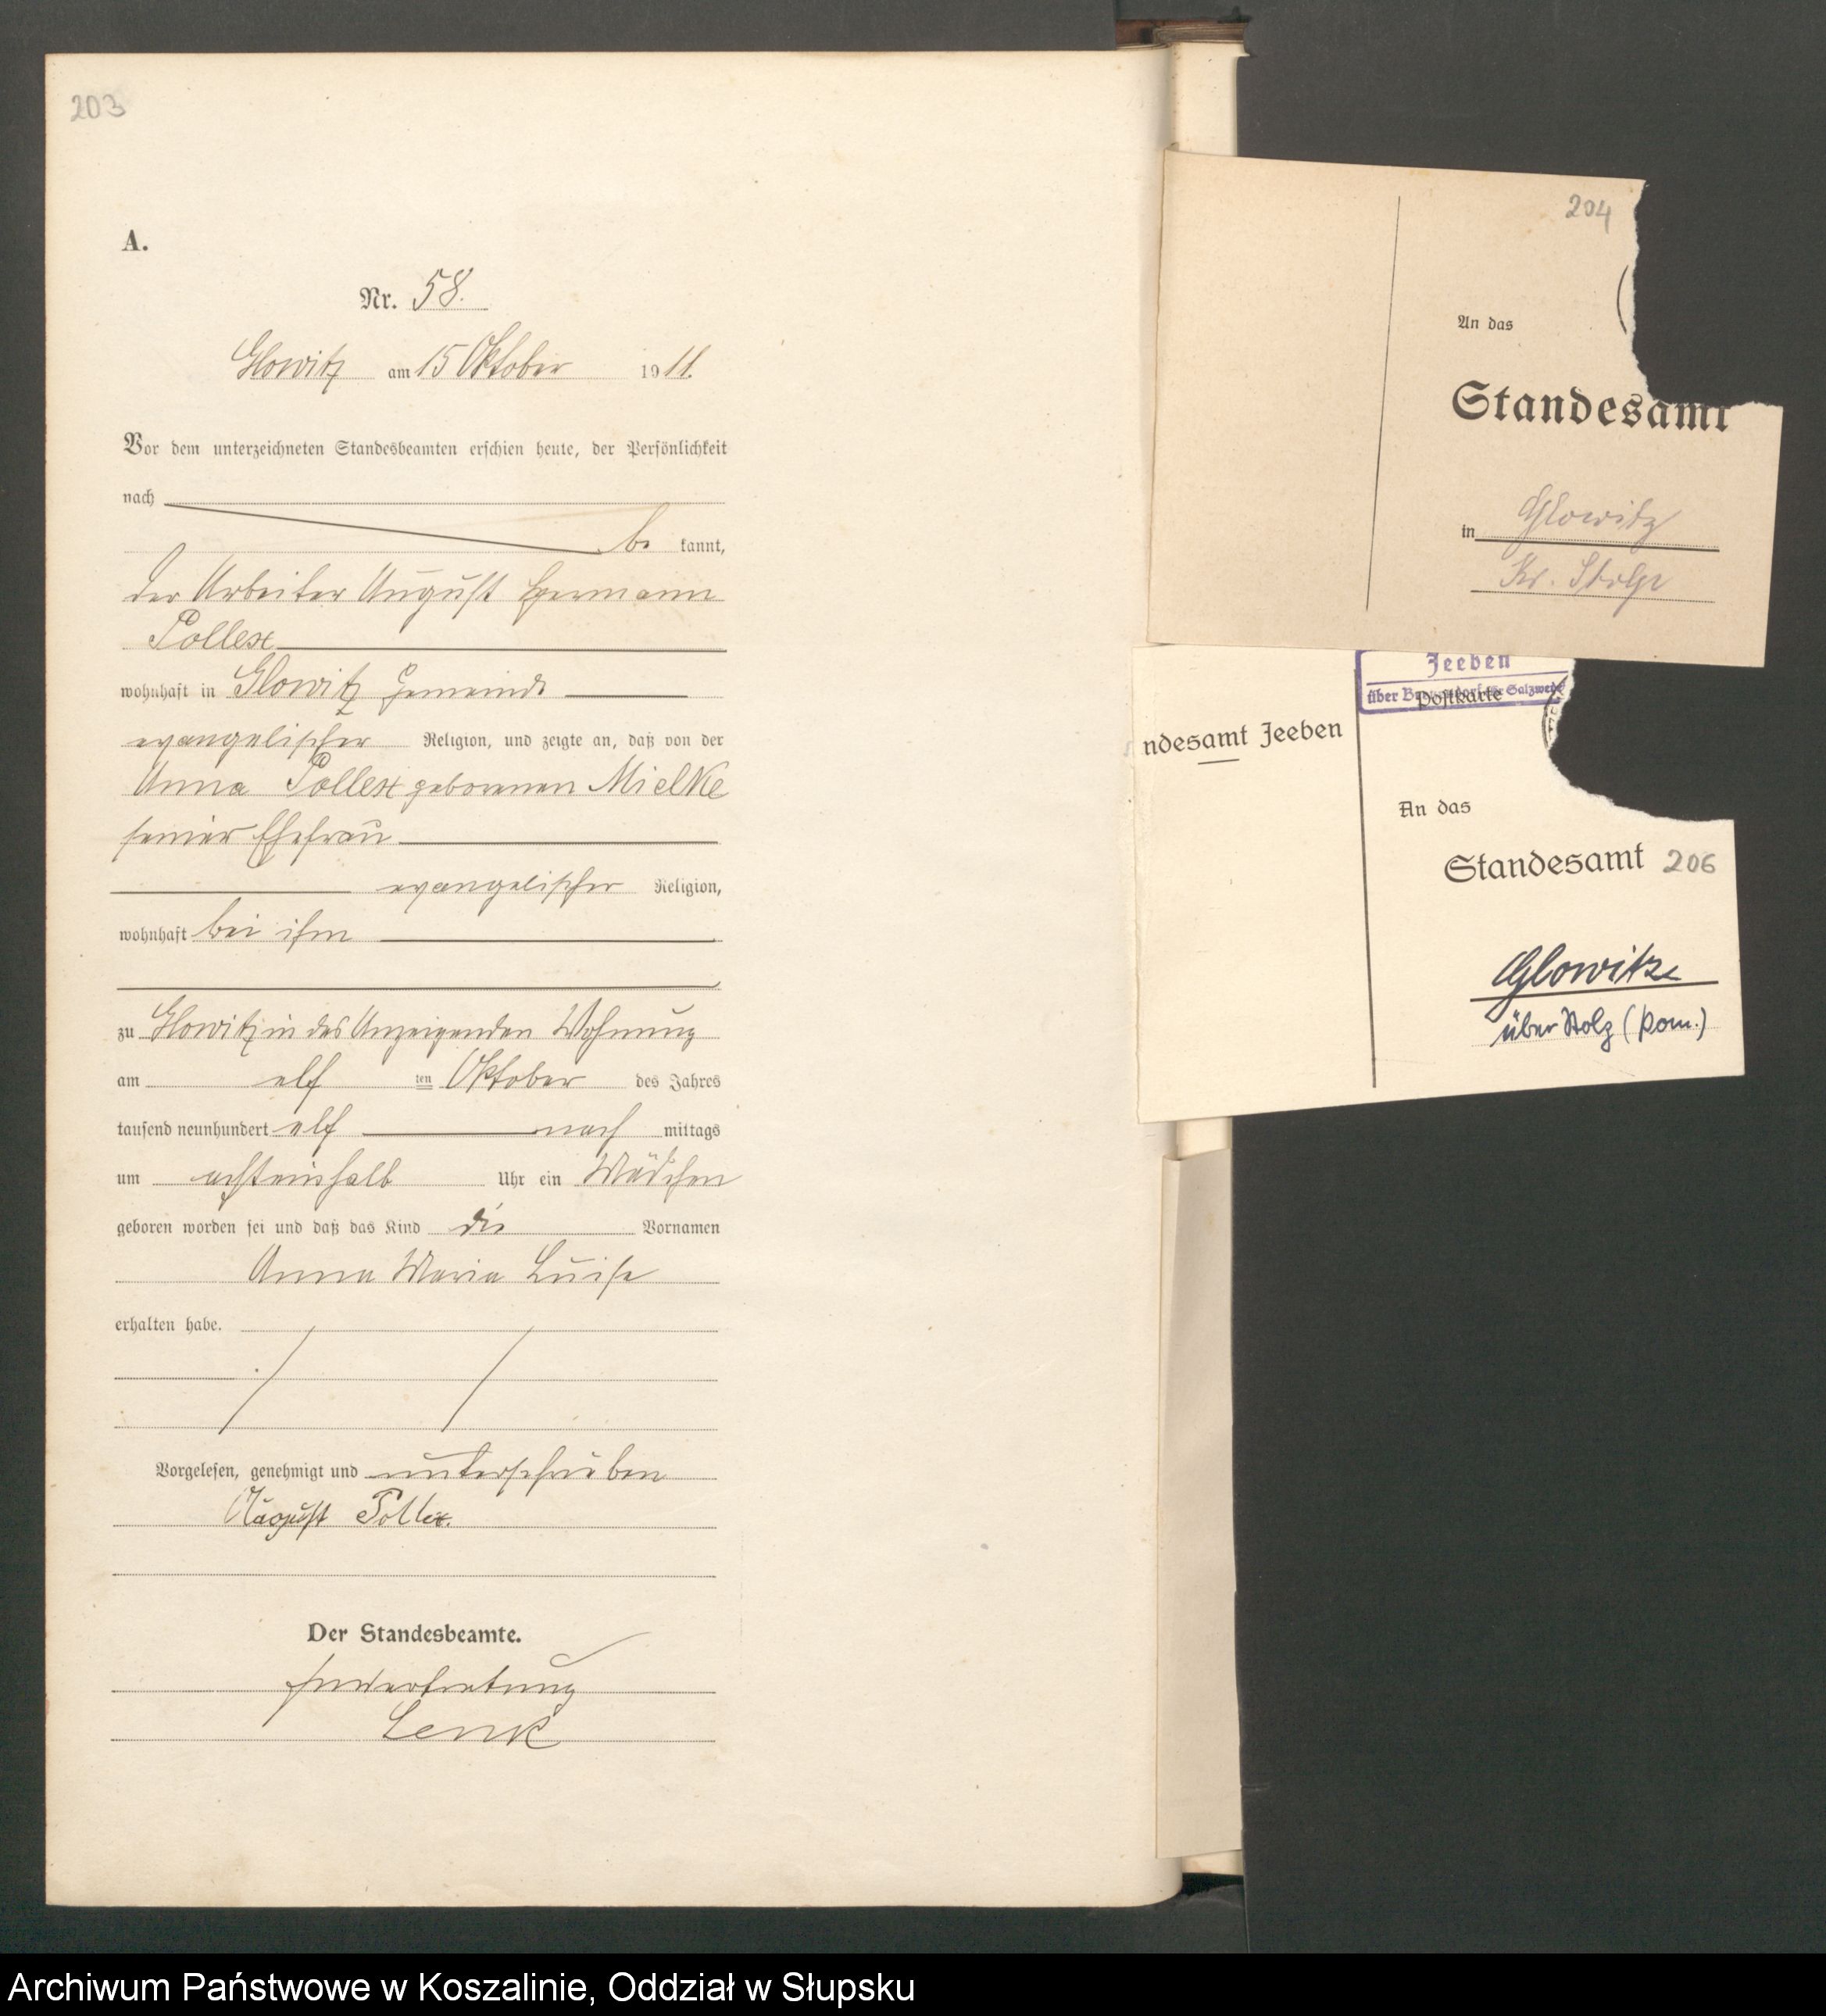 203
A.
Nr. 58.
Glowitz am 15 Oktober 1911.
Vor dem unterzeichneten Standesbeamten erschien heute, der Persönlichkeit
nach
be kannt,
der Arbeiter August Hermann
Pollex
wohnhaft in Glowitz Gemeinde
evangelischer Religion, und zeigte an, daß von der
Anna Pollex geborenen Mielke
seiner Ehefrau
evangelischer Religion,
wohnhaft bei ihm
zu Glowitz in des Anzeigenden Wohnung
am elf ten Oktober des Jahres
tausend neunhundert elf nach mittags
um achteinhalb Uhr ein Mädchen
geboren worden sei und daß das Kind die Vornamen
Anna Maria Luise
erhalten habe.
Vorgelesen, genehmigt und unterschrieben
August Pollex.
Der Standesbeamte.
In Vertretung
Lenk
204
An das
Standesamt
in Glowitz
Kr. Stolp
Jeeben
über Salzwedel
Postkarte
ndesamt Jeeben
An das
Standesamt 206
Glowitz
über Stolp (Pom.)
Archiwum Państwowe w Koszalinie, Oddział w Słupsku